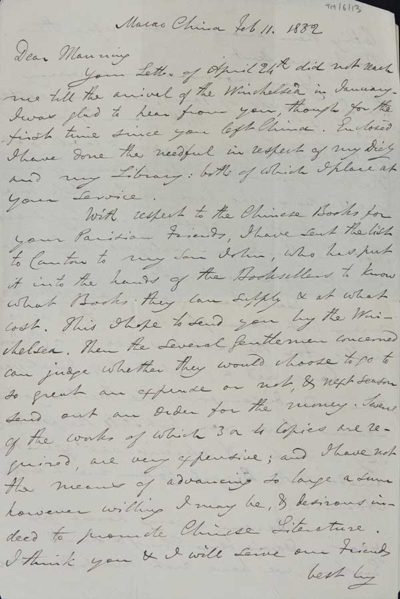 TM/6/13
Macao China Feb 11. 1832
Dear Manning
Your Letter of April 24th did not reach
me till the arrival of the Winchelsea in January.
I was glad to hear from you, though for the
first time since you left China. Enclosed
I have done the needful in respect of my Dicty
and my Library: both of which I place at
your Service.
With respect to the Chinese Books for
your Parisian Friends, I have sent the list
to Canton to my son John, who has put
it into the hands of the Booksellers to know
what Books they can supply & at what
cost. This I hope to send you by the Win-
chelsea. Then the several Gentlemen concerned
can judge whether they would choose to go to
so great an expense or not, & next season
send out an order for the money. Some
of the works of which 3 or 4 Copies are re-
quired, are very expensive; and I have not
the means of advancing so large a sum
however willing I may be, & desirous in-
deed to promote Chinese Literature.
I think you & I will serve our Friends
best by